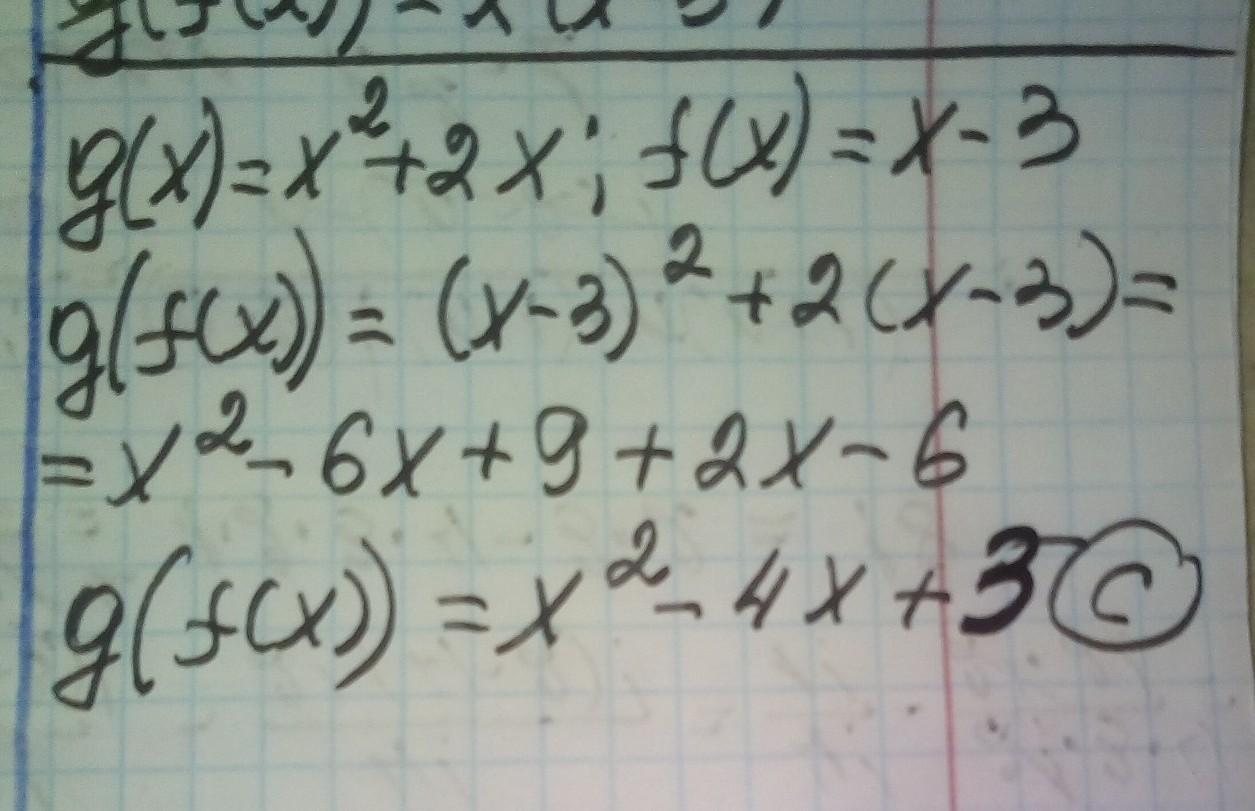 g(f(x)) =
g(x)=x²+2x; f(x)=x-3
g(f(x))= (x-3)²+2(x-3)=
=x²-6x+9+2x-6
g(f(x))=x²-4x+3 C